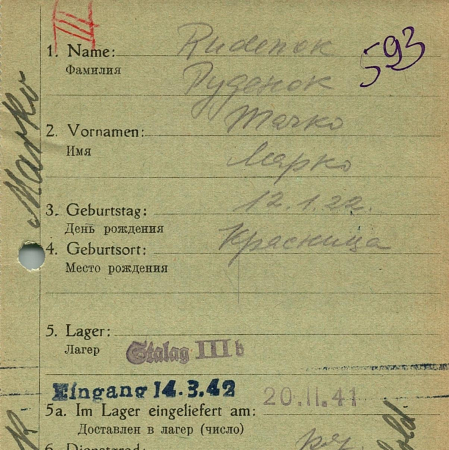 III
593
1. Name: Rudenok
Фамилия Руденок
2. Vornamen: Marko
Имя Марко
Marko
3. Geburtstag: 12.1.22.
День рождения
4. Geburtsort: Красница
Место рождения
5. Lager:
Лагер Stalag III b
Eingang 14.3.42 20.11.41
5a. Im Lager eingeliefert am:
Доставлен в лагер (число)
6. Dienstgrad: